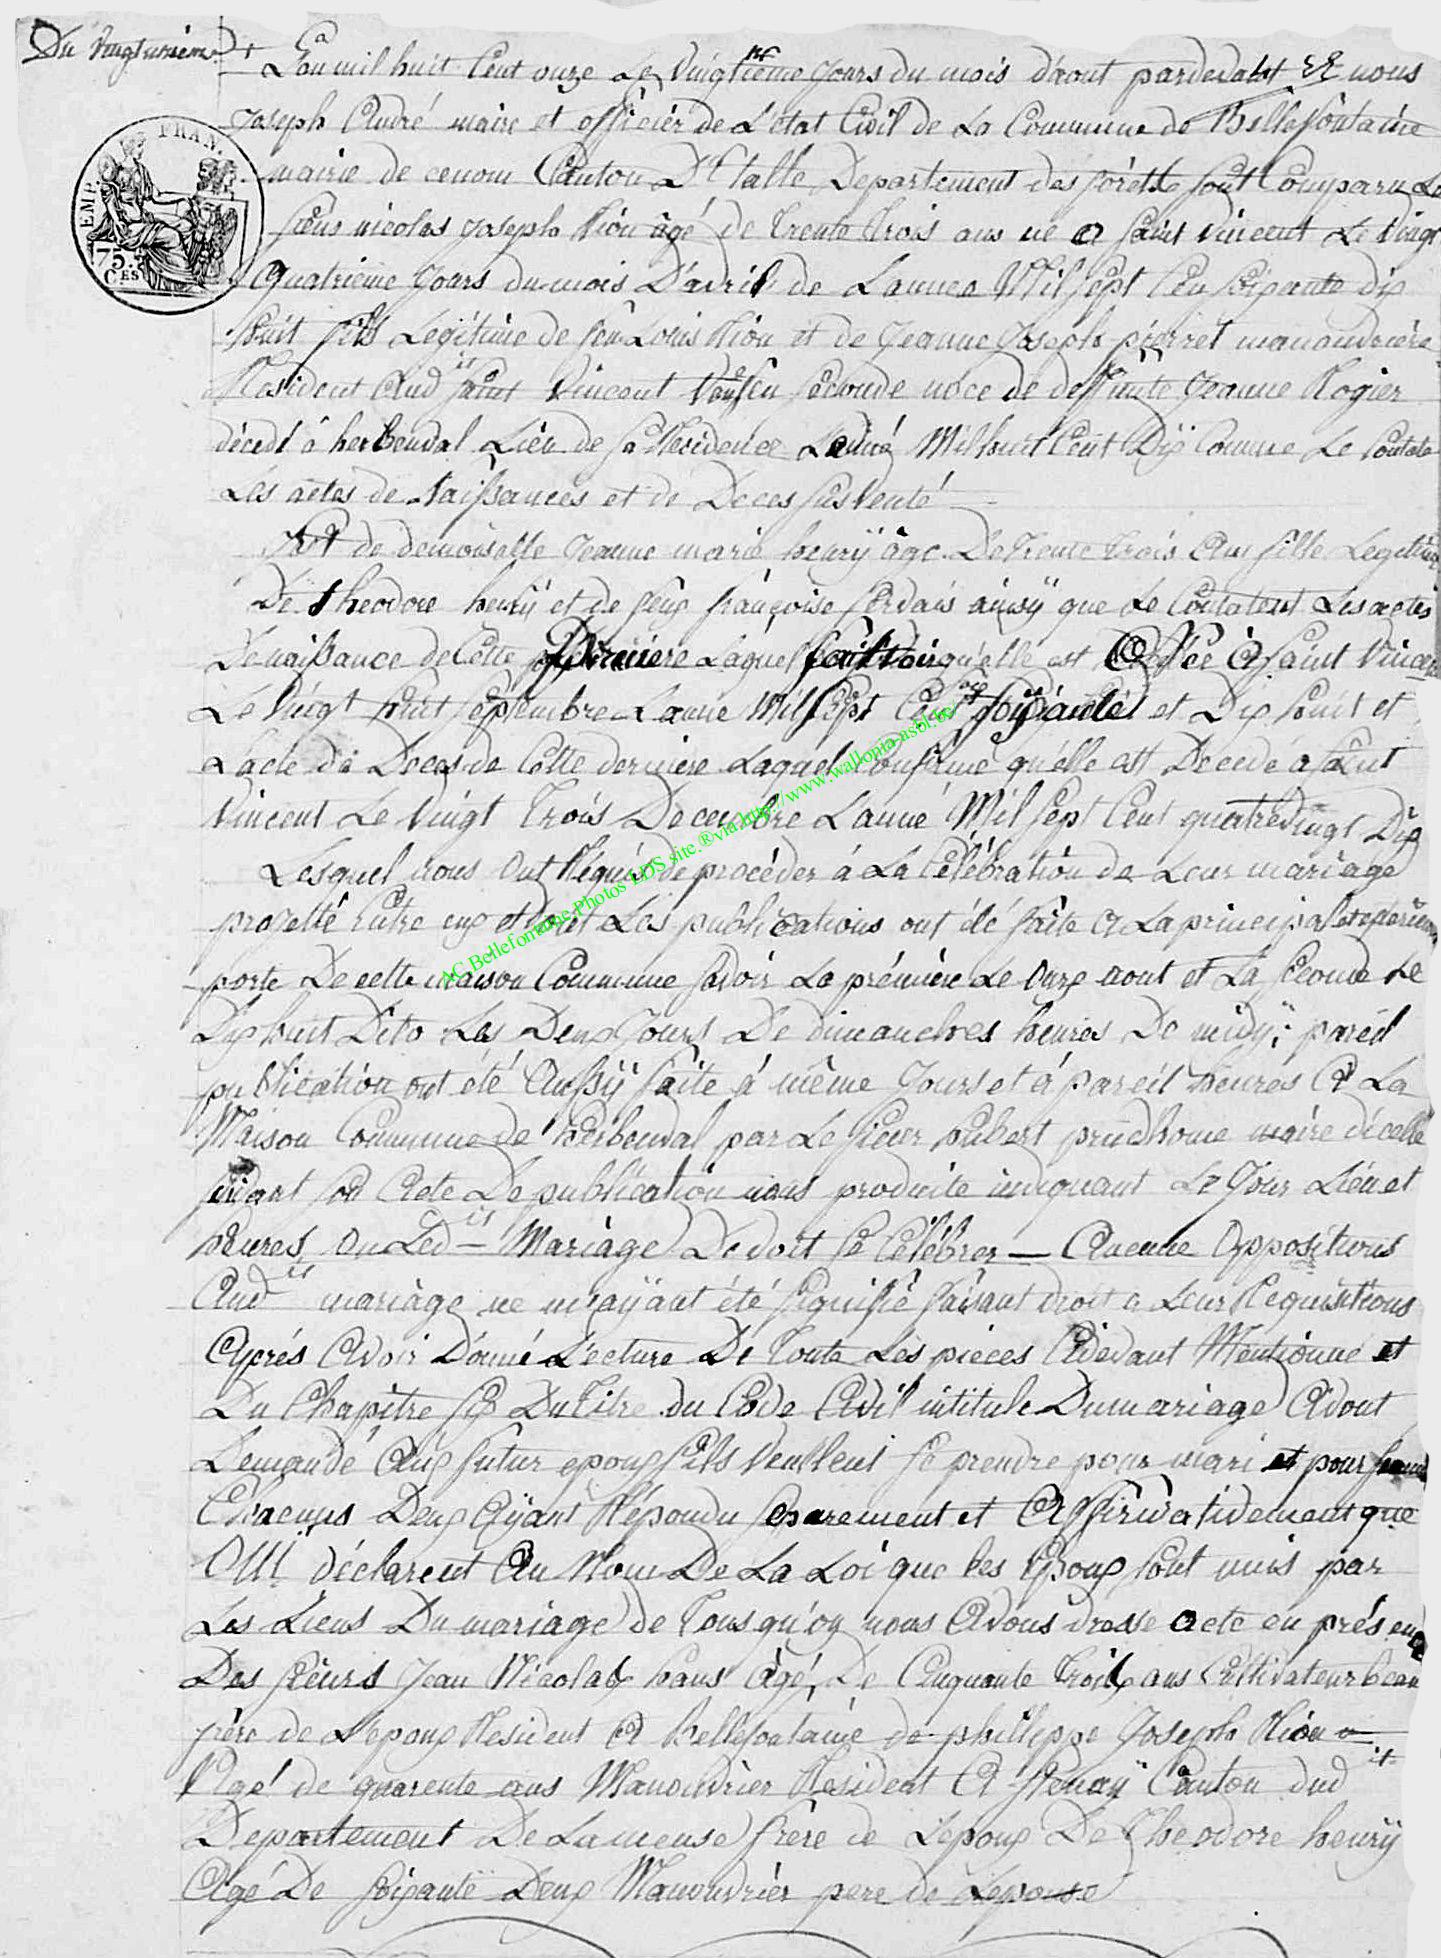 Du vingtunieme
L'an mil huit Cent onze Le vingtieme Jours du mois d'aout pardevant nous
Joseph André maire et officier de L'etat Civil de La Commune de Bellefontaine
mairie de cenom Canton D'Etalle Departement des foréts sont Comparu Le
sieur nicolas Joseph Rion âgé de Trente Trois ans né a saint vincent Le vingt
quatrieme Jours du mois D'avril de L'année Mil sept Cen soixante dix
huit fils Legitime de feu Louis Rion et de Jeanne Joseph pierret manoudriere
Resident Aud it saint vincent veuf en seconde noce de deffunte Jeanne Rogier
décedé â herbeuval Lieu de sa Residence L'anné Mil huit Cent Dix Comme Le Constate
Les actes de Naissances et de Deces susventé
Et de demoiselle Jeanne marie henrÿ âgé De Trente Trois Ans fille Legitime
De theodore henrÿ et de feux françoise servais ainsÿ que Le Constatent Les actes
De naissance de Cette premiere Laquel fait voir qu'elle est Née â saint vincent
Le vingt huit septembre L'anne Mil sept Cent soixante et Dix huit et
L'acte dû Deces de Cette derniere Laquel Confirme qu'elle est Decedé a saint
vincent Le vingt Trois Decembre L'anné Mil sept Cent quatrevingt Dix
Lesquel nous ont Réquis de procéder á La Célébration de Leur mariage
projetté Entre eux et dont Les publications ont été faite a La principale et exterieure
porte De cette maison Commune savoir La prémière Le Onze aout et La seconde Le
Dix huit Dito Les Deux Jours De dimanches heures De midÿ; pareil
publication ont été Aussÿ faite á même Jours et á pareil heures A La
Maison Commune de herbeuval par Le sieur hubert prudhome maire d'icelle
suivant son Acte De publication nous produite indiquant Le Jour Lieu et
heures ou Led it Mariage De doit se Célébrer — Aucune Oppositions
Aud it mariage ne m'aÿant été signifié faisant droit a Leur Requisitions
Aprés Avoir Donné Lecture De Toute Les pieces Cidevant Mentionné et
Du Chapitre six Du Titre du Code Civil intitulé Du mariage Avont
Demandé Aux futur epoux s'ils veullent se prendre pour mari et pour femme
Chacuns Deux Aÿant Répondu separement et Affirmativement que
OUI déclarent Au Nom De La Loi que les Epoux sont unis par
Les Liens Du mariage de Tous qu'oy nous Avons dressé acte en présence
Des sieurs Jean Nicolas hans âgé De Cinquante Trois ans Cultivateur beau
frére de L'epoux Resident A Bellefontaine de phillippe Joseph Rion
Agé de quarente ans Manoudrier Resident A stenaÿ Canton dud it
Departement De La meuse frère de L'epoux De Theodore henrÿ
Agé De soixante Deux Manoudrier pere de L'épouse
EMP. FRAN.
75. Ces
AC Bellefontaine Photos LDS site ® via http://www.wallonia-asbl.be/